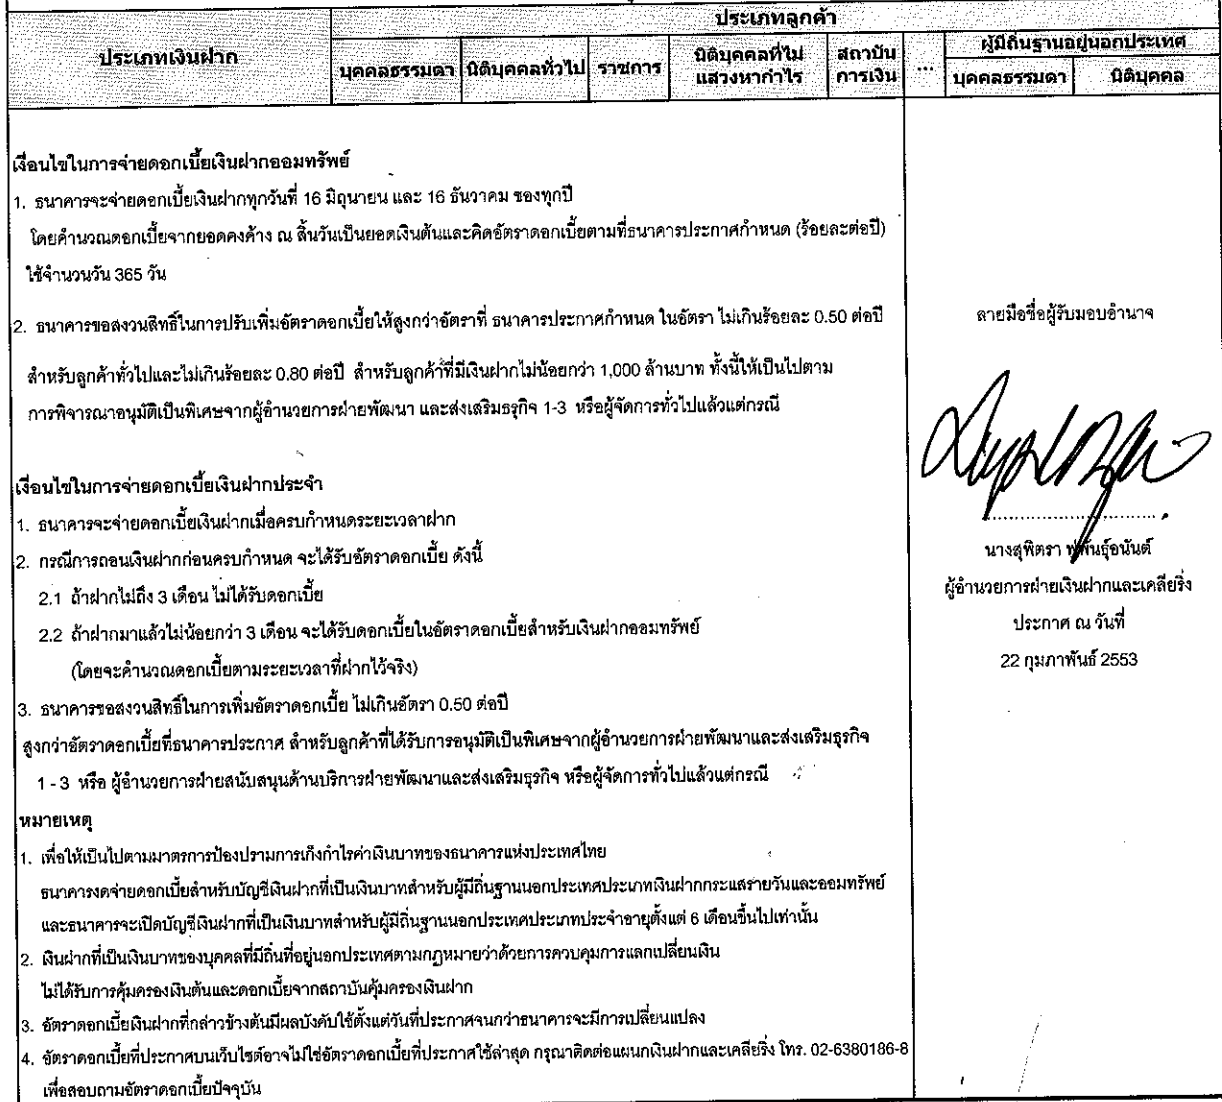 ประเภทลูกค้า
ประเภทเงินฝาก
บุคคลธรรมดา นิติบุคคลทั่วไป ราชการ นิติบุคคลที่ไม่แสวงหากำไร สถาบันการเงิน ... ผู้มีถิ่นฐานอยู่นอกประเทศ
บุคคลธรรมดา นิติบุคคล
เงื่อนไขในการจ่ายดอกเบี้ยเงินฝากออมทรัพย์
1. ธนาคารจะจ่ายดอกเบี้ยเงินฝากทุกวันที่ 16 มิถุนายน และ 16 ธันวาคม ของทุกปี
โดยคำนวณดอกเบี้ยจากยอดคงค้าง ณ สิ้นวันเป็นยอดเงินต้นและคิดอัตราดอกเบี้ยตามที่ธนาคารประกาศกำหนด (ร้อยละต่อปี)
ใช้จำนวนวัน 365 วัน
2. ธนาคารขอสงวนสิทธิ์ในการปรับเพิ่มอัตราดอกเบี้ยให้สูงกว่าอัตราที่ ธนาคารประกาศกำหนด ในอัตรา ไม่เกินร้อยละ 0.50 ต่อปี
สำหรับลูกค้าทั่วไปและไม่เกินร้อยละ 0.80 ต่อปี สำหรับลูกค้าที่มีเงินฝากไม่น้อยกว่า 1,000 ล้านบาท ทั้งนี้ให้เป็นไปตาม
การพิจารณาอนุมัติเป็นพิเศษจากผู้อำนวยการฝ่ายพัฒนา และส่งเสริมธรุกิจ 1-3 หรือผู้จัดการทั่วไปแล้วแต่กรณี
เงื่อนไขในการจ่ายดอกเบี้ยเงินฝากประจำ
1. ธนาคารจะจ่ายดอกเบี้ยเงินฝากเมื่อครบกำหนดระยะเวลาฝาก
2. กรณีการถอนเงินฝากก่อนครบกำหนด จะได้รับอัตราดอกเบี้ย ดังนี้
2.1 ถ้าฝากไม่ถึง 3 เดือน ไม่ได้รับดอกเบี้ย
2.2 ถ้าฝากมาแล้วไม่น้อยกว่า 3 เดือน จะได้รับดอกเบี้ยในอัตราดอกเบี้ยสำหรับเงินฝากออมทรัพย์
(โดยจะคำนวณดอกเบี้ยตามระยะเวลาที่ฝากไว้จริง)
3. ธนาคารขอสงวนสิทธิ์ในการเพิ่มอัตราดอกเบี้ย ไม่เกินอัตรา 0.50 ต่อปี
สูงกว่าอัตราดอกเบี้ยที่ธนาคารประกาศ สำหรับลูกค้าที่ได้รับการอนุมัติเป็นพิเศษจากผู้อำนวยการฝ่ายพัฒนาและส่งเสริมธุรกิจ
1 - 3 หรือ ผู้อำนวยการฝ่ายสนับสนุนด้านบริการฝ่ายพัฒนาและส่งเสริมธุรกิจ หรือผู้จัดการทั่วไปแล้วแต่กรณี
หมายเหตุ
1. เพื่อให้เป็นไปตามมาตรการป้องปรามการเก็งกำไรค่าเงินบาทของธนาคารแห่งประเทศไทย
ธนาคารงดจ่ายดอกเบี้ยสำหรับบัญชีเงินฝากที่เป็นเงินบาทสำหรับผู้มีถิ่นฐานนอกประเทศประเภทเงินฝากกระแสรายวันและออมทรัพย์
และธนาคารจะเปิดบัญชีเงินฝากที่เป็นเงินบาทสำหรับผู้มีถิ่นฐานนอกประเทศประเภทประจำอายุตั้งแต่ 6 เดือนขึ้นไปเท่านั้น
2. เงินฝากที่เป็นเงินบาทของบุคคลที่มีถิ่นที่อยู่นอกประเทศตามกฎหมายว่าด้วยการควบคุมการแลกเปลี่ยนเงิน
ไม่ได้รับการคุ้มครองเงินต้นและดอกเบี้ยจากสถาบันคุ้มครองเงินฝาก
3. อัตราดอกเบี้ยเงินฝากที่กล่าวข้างต้นมีผลบังคับใช้ตั้งแต่วันที่ประกาศจนกว่าธนาคารจะมีการเปลี่ยนแปลง
4. อัตราดอกเบี้ยที่ประกาศบนเว็บไซต์อาจไม่ใช่อัตราดอกเบี้ยที่ประกาศใช้ล่าสุด กรุณาติดต่อแผนกเงินฝากและเคลียริ่ง โทร. 02-6380186-8
เพื่อสอบถามอัตราดอกเบี้ยปัจจุบัน
ลายมือชื่อผู้รับมอบอำนาจ
นางสุพิตรา พู่พันธุ์อนันต์
ผู้อำนวยการฝ่ายเงินฝากและเคลียริ่ง
ประกาศ ณ วันที่
22 กุมภาพันธ์ 2553